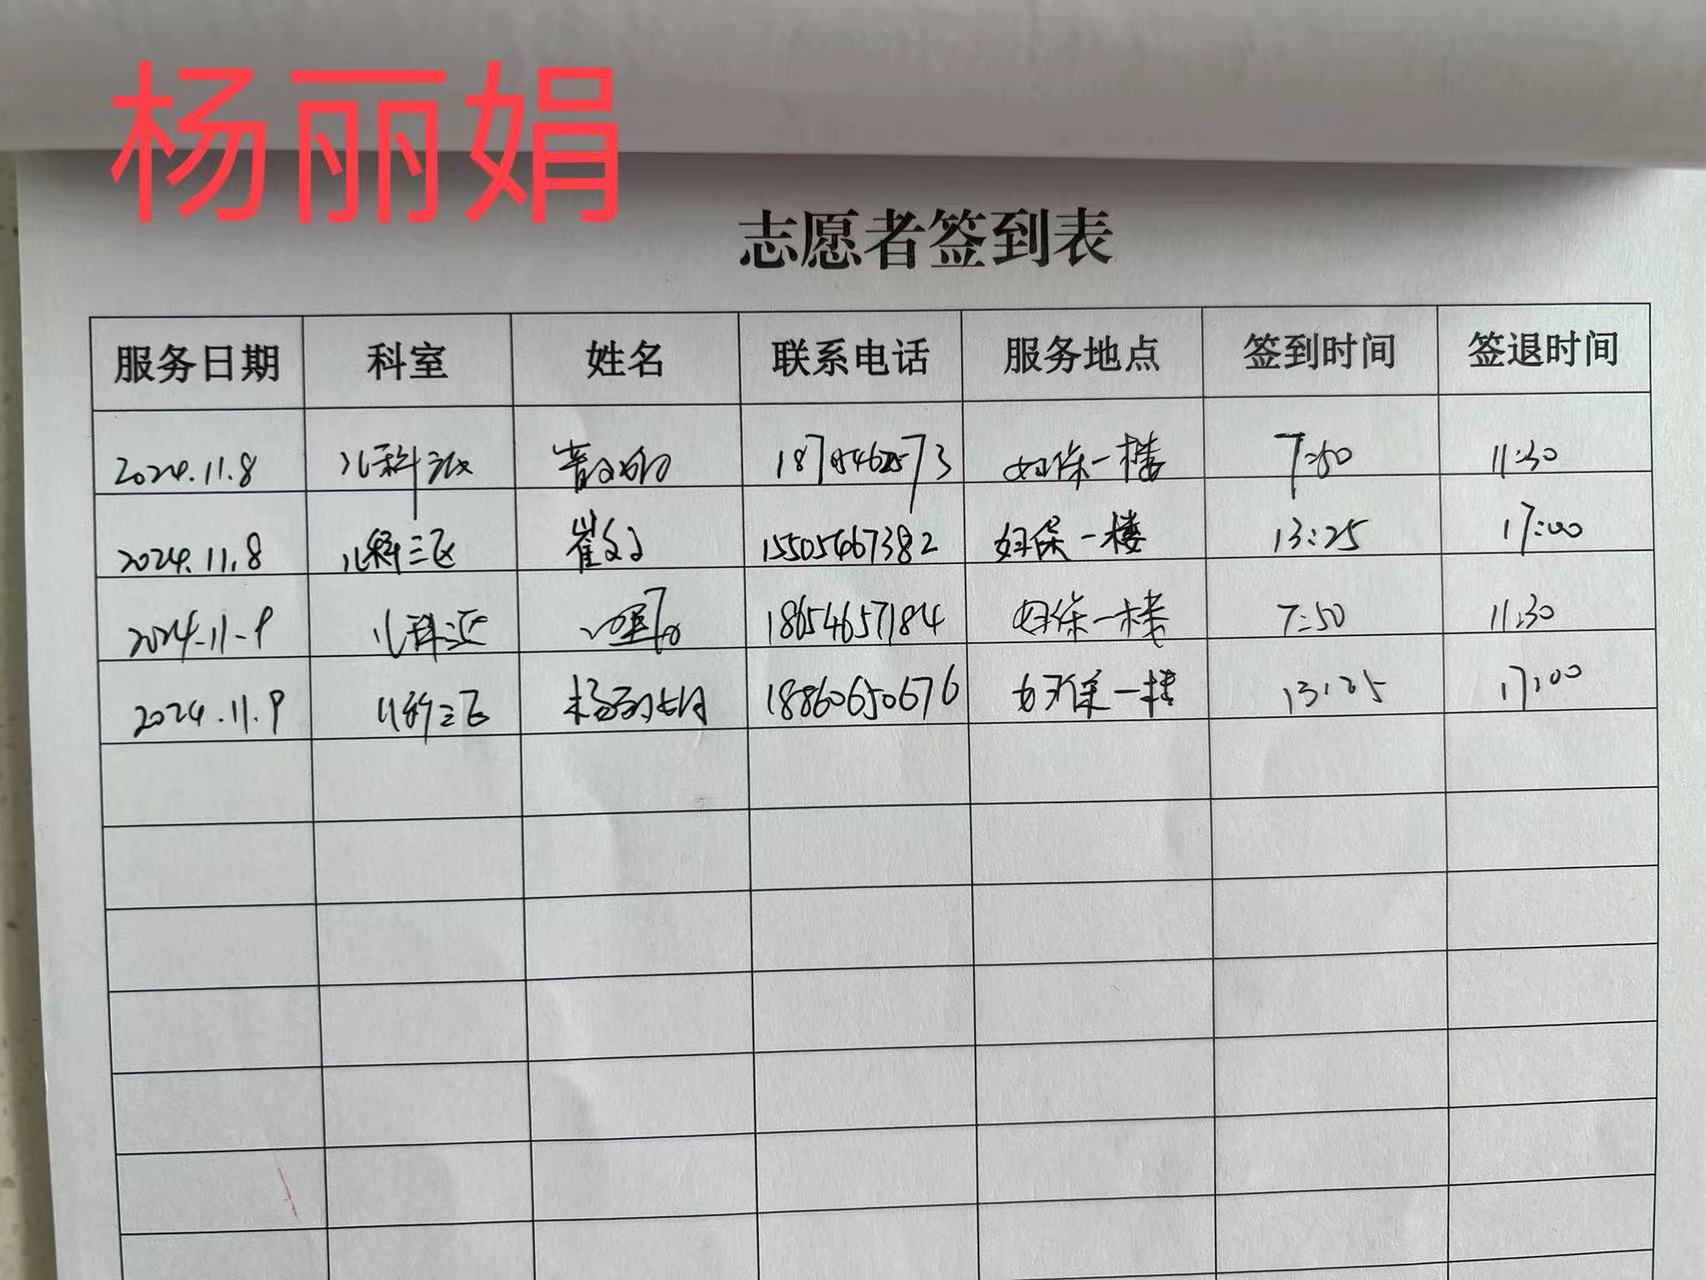 杨丽娟
志愿者签到表
服务日期 科室 姓名 联系电话 服务地点 签到时间 签退时间
2024.11.8 儿科三区 妇保一楼 7:50 11:30
2024.11.8 儿科三区 崔 15505467382 妇保一楼 13:25 17:00
2024.11.9 儿科三区 18654657184 妇保一楼 7:50 11:30
2024.11.9 儿科三区 杨丽娟 18860650676 妇保一楼 13:25 17:00